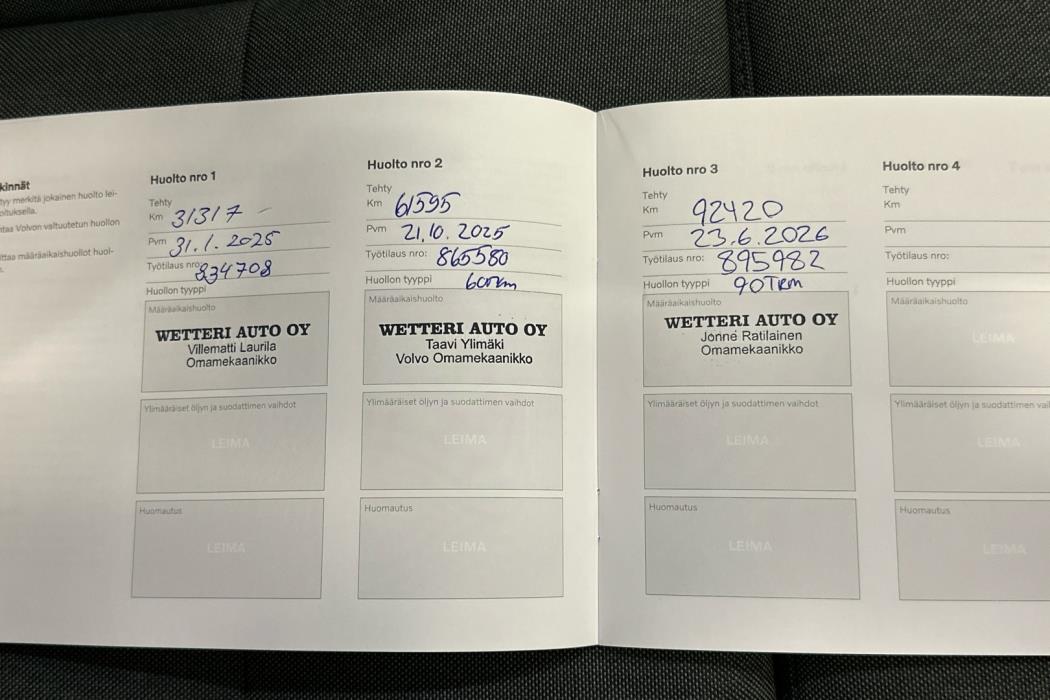 kinnät
tyy merkitä jokainen huolto lei-
oituksella.
ntaa Volvon valtuutetun huollon
ittaa määräaikaishuollot huol-
Huolto nro 1
Tehty
Km 31317
Pvm 31.1.2025
Työtilaus nro: 834708
Huollon tyyppi
Määräaikaishuolto
WETTERI AUTO OY
Villematti Laurila
Omamekaanikko
Ylimääräiset öljyn ja suodattimen vaihdot
LEIMA
Huomautus
LEIMA
Huolto nro 2
Tehty
Km 61595
Pvm 21.10.2025
Työtilaus nro: 865580
Huollon tyyppi
Määräaikaishuolto
WETTERI AUTO OY
Taavi Ylimäki
Volvo Omamekaanikko
Ylimääräiset öljyn ja suodattimen vaihdot
LEIMA
Huomautus
LEIMA
Huolto nro 3
Tehty
Km 92420
Pvm 23.6.2026
Työtilaus nro: 895982
Huollon tyyppi 90Tkm
Määräaikaishuolto
WETTERI AUTO OY
Jonne Ratilainen
Omamekaanikko
Ylimääräiset öljyn ja suodattimen vaihdot
LEIMA
Huomautus
LEIMA
Huolto nro 4
Tehty
Km
Pvm
Työtilaus nro:
Huollon tyyppi
Määräaikaishuolto
LEIMA
Ylimääräiset öljyn ja suodattimen vaih
LEIMA
Huomautus
LEIMA